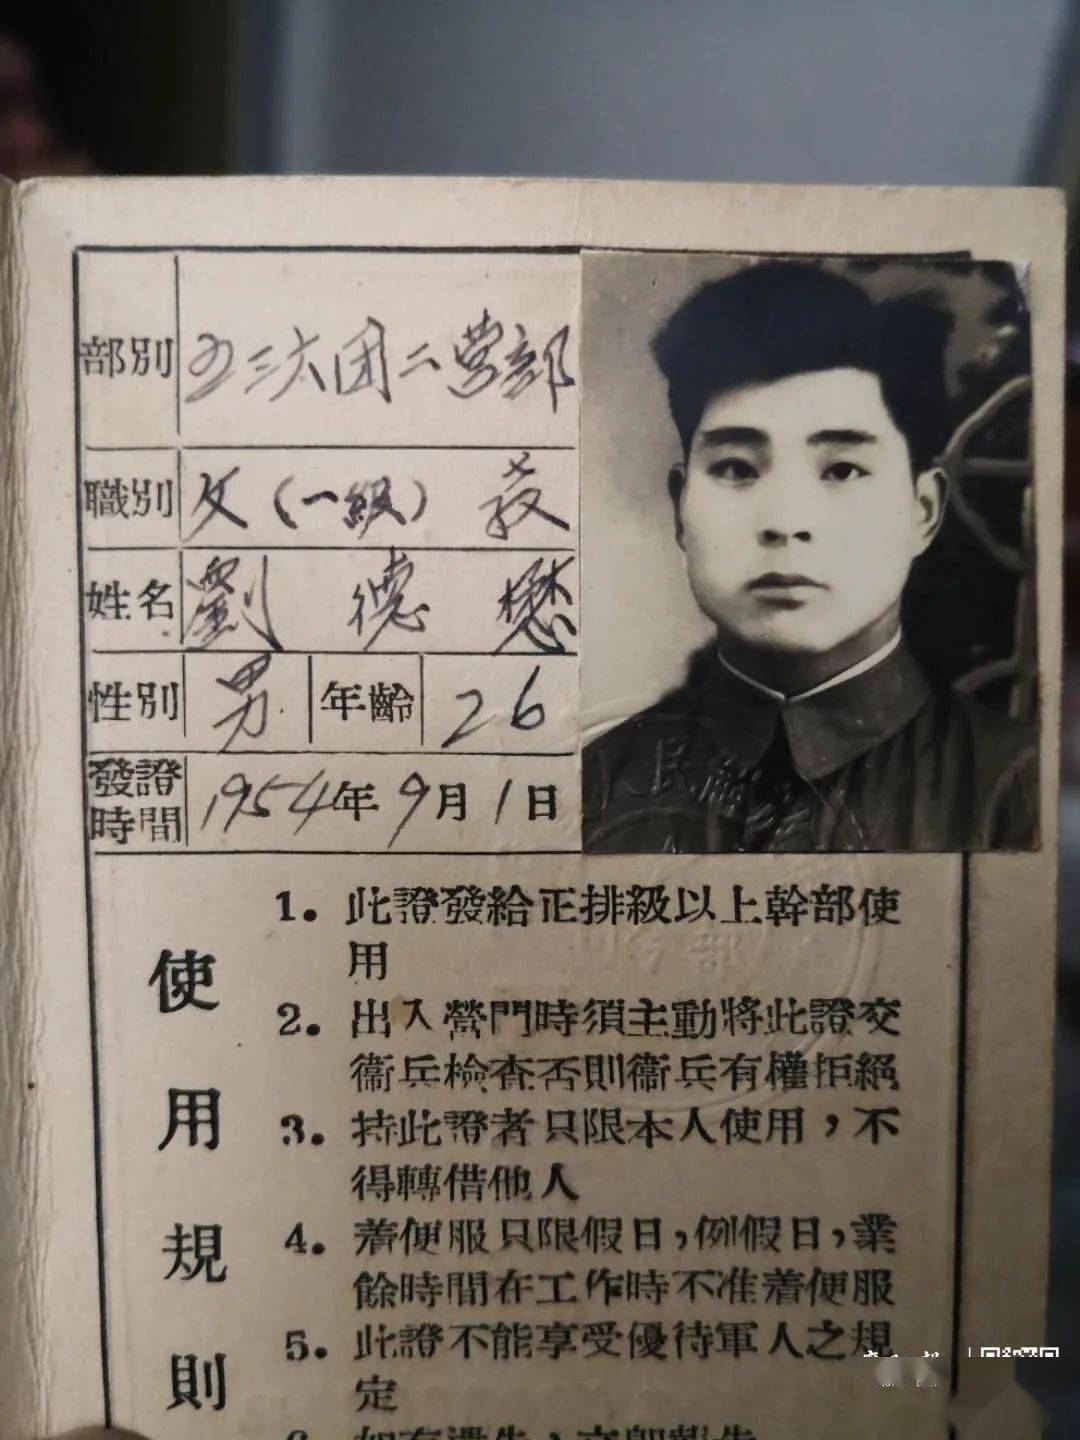 部別 五三六团二营部
職別 文(一級)教
姓名 劉德懋
性別 男 年齡 26
發證時間 1954年9月1日
使用規則
1. 此證發給正排級以上幹部使
用
2. 出入營門時須主動將此證交
衞兵檢查否則衞兵有權拒絕
3. 持此證者只限本人使用，不
得轉借他人
4. 着便服只限假日，例假日，業
餘時間在工作時不准着便服
5. 此證不能享受優待軍人之規
定